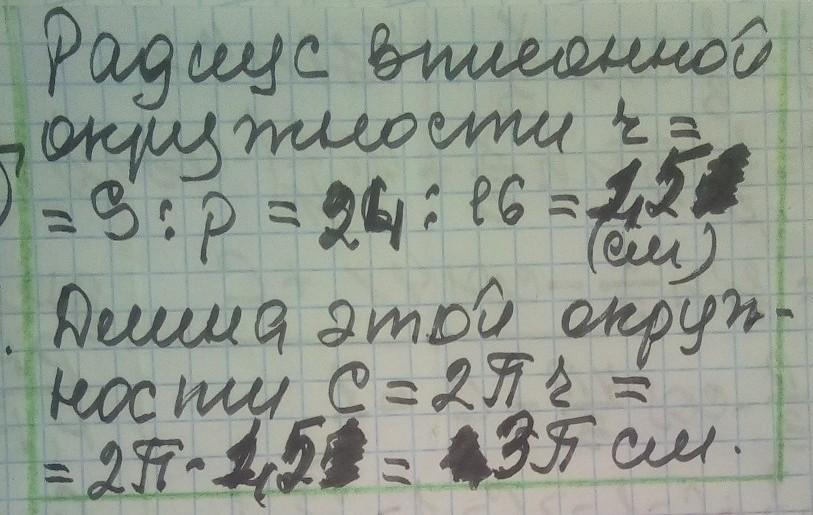 Радиус вписанной
окружности r =
= S : p = 24 : 16 = 1,5
(см)
Длина этой окруж-
ности C = 2π r =
= 2π · 1,5 = 3π см.